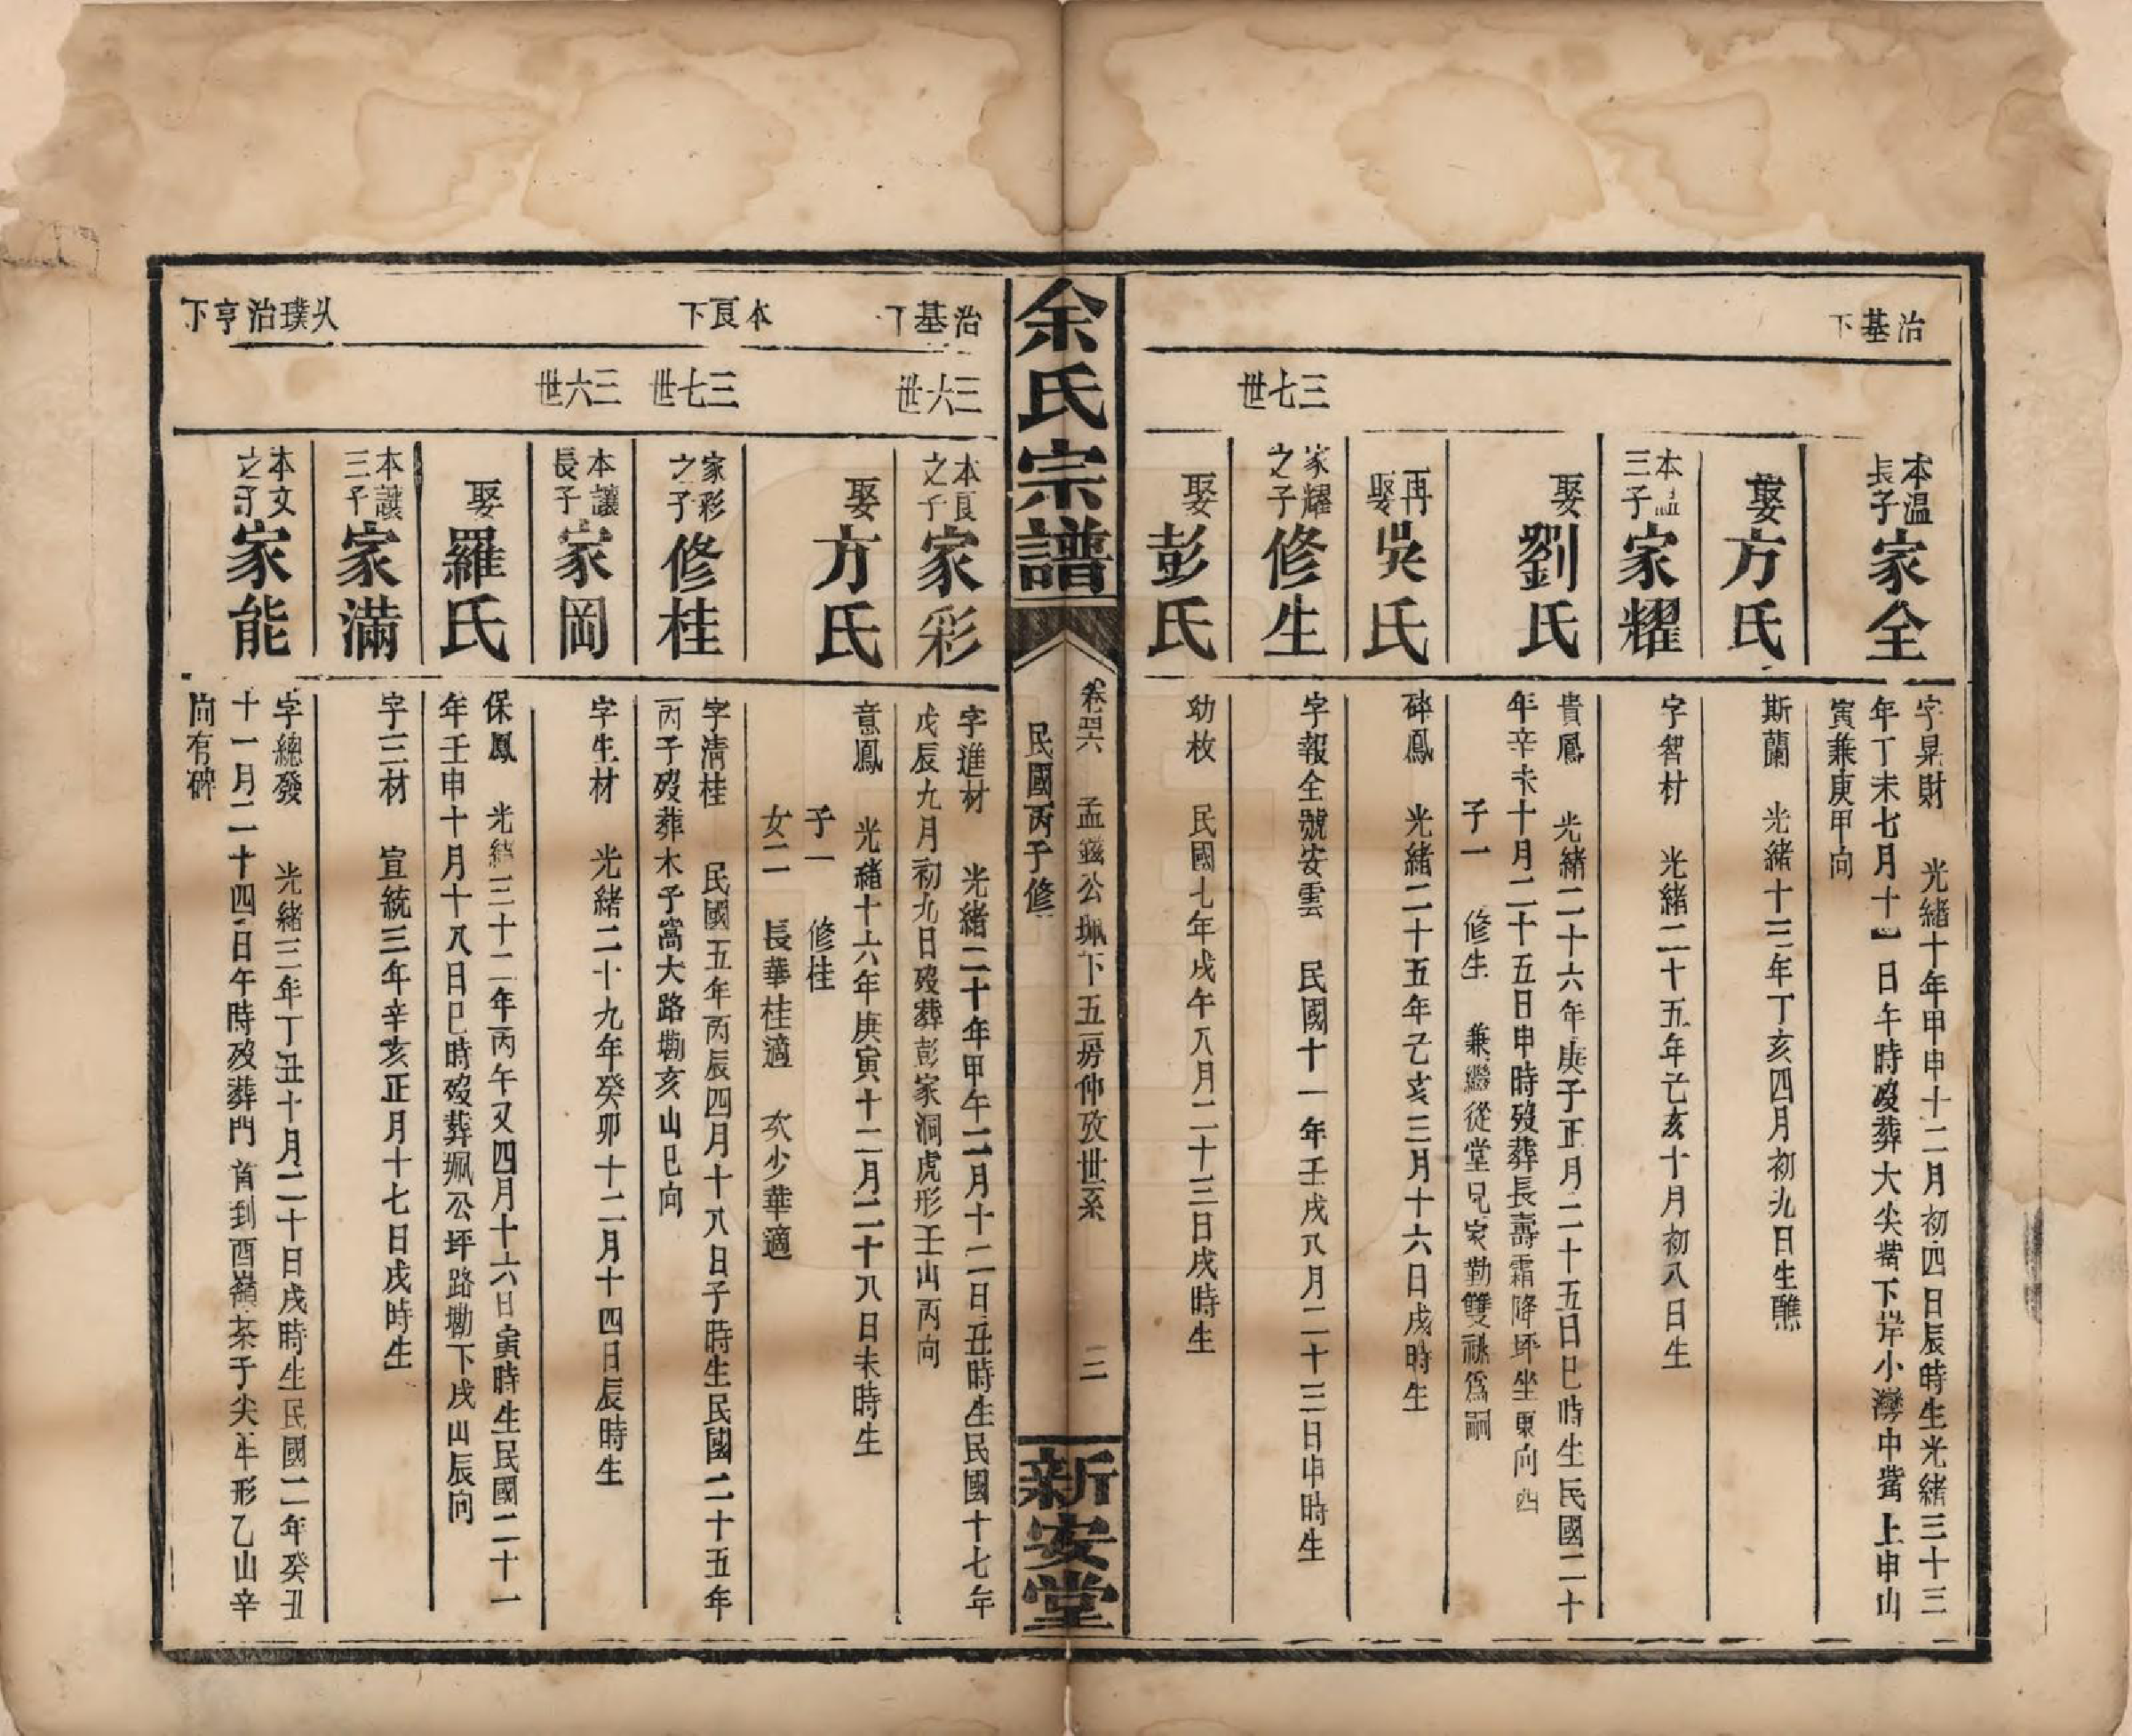 治基下
本溫長子 家全
字昻財 光緒十年甲申十二月初四日辰時生光緒三十三
年丁未七月十一日午時歿葬大尖嘴下岸小灣中嘴上申山
寅兼庚甲向
娶 方氏
斯蘭 光緒十三年丁亥四月初九日生醮
本溫三子 家耀
字智材 光緒二十五年己亥十月初八日生
娶 劉氏
貴鳳 光緒二十六年庚子正月二十五日巳時生民國二十
年辛未十月二十五日申時歿葬長壽霜降坪坐東向西
子一 修生 兼繼從堂兄家勤雙祧為嗣
再娶 吳氏
碎鳳 光緒二十五年乙亥三月十六日戌時生
三七世
家耀之子 修生
字報全號安雲 民國十一年壬戌八月二十三日申時生
娶 彭氏
幼枚 民國七年戊午八月二十三日戌時生
余氏宗譜
卷 六 孟 公珮下五房仲孜世系 三
民國丙子修
新安堂
治基下
三六世
本良之子 家彩
字進材 光緒二十年甲午二月十二日丑時生民國十七年
戊辰九月初九日歿葬彭家洞虎形壬山丙向
娶 方氏
意鳳 光緒十六年庚寅十二月二十八日未時生
子一 修桂
女二 長華桂適 次少華適
本良下
三七世
家彩之子 修桂
字清桂 民國五年丙辰四月十八日子時生民國二十五年
丙子歿葬木子窩大路墈亥山巳向
三六世
本讓長子 家岡
字生材 光緒二十九年癸卯十二月十四日辰時生
娶 羅氏
保鳳 光緒三十二年丙午又四月十六日寅時生民國二十一
年壬申十月十八日巳時歿葬珮公坪路墈下戌山辰向
本讓三子 家滿
字三材 宣統三年辛亥正月十七日戌時生
從璞治亨下
本文之子 家能
字總發 光緒三年丁丑十月二十日戌時生民國二年癸丑
十一月二十四日午時歿葬門首到酉嶺茶子尖牛形乙山辛
向有碑